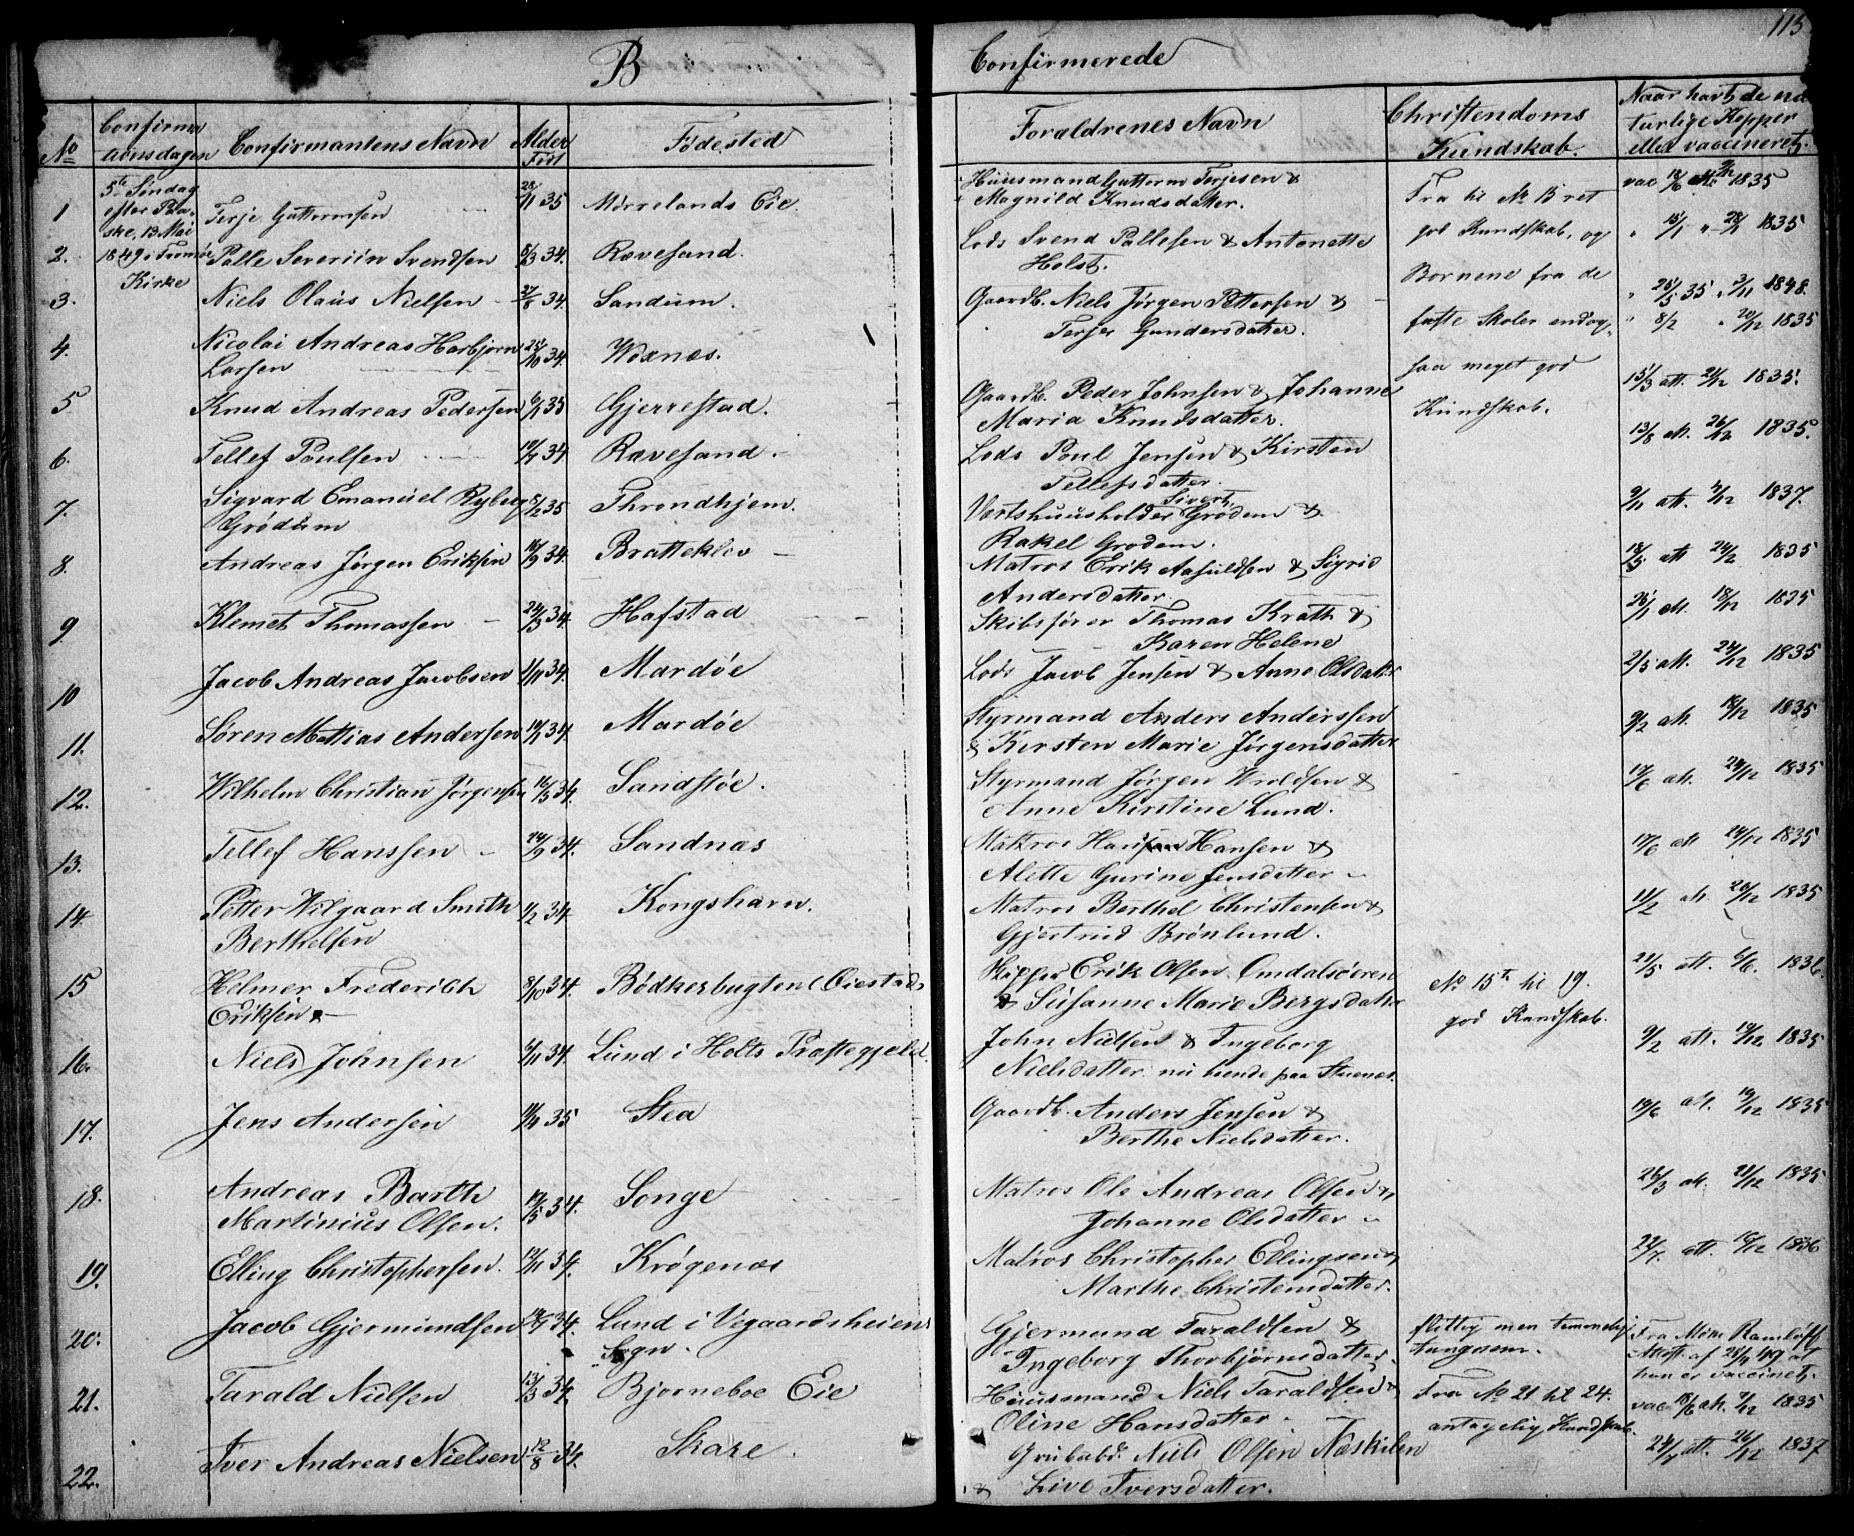 B
Confirmerede
115
No
Confirma
tionsdagen
Confirmantens Navn
Alder
Født
Fødested
Forældrenes Navn
Christendoms
Kundskab.
Naar havt de na
turlige Kopper
eller vaccineret.
5te Søndag
efter Paa-
ske, 13 Mai
1849 i Tromøe
Kirke
1 Terje Guttormsen 28/11 35 Mørrelands Eie. Huusmand Guttorm Terjesen &
Magnild Knudsdatter. vac 18/6 1835
2. Palle Severin Svendsen 8/3 34. Rævesand. Lods Svend Pallesen & Antonette
Holst. 1835
3. Niels Olaus Nielsen 27/8 34. Sandum. Gaardb. Niels Jørgen Pettersen &
Terjer Gundersdatter. 25/5 35 3/11 1848.
4. Nicolai Andreas Harbjørn
Larsen 25/10 34. Woxnæs. 8/2 20/12 1835
5 Knud Andreas Pedersen 35 Gjerrestad. Gaardb. Peder Johnsen & Johanne
Maria Knudsdatter. 15/3 att. 21/12 1835.
6. Tellef Poulsen 34 Rævesand. Lods Poul Jensen & Kirsten
Tellefsdatter. 13/8 att. 26/12 1835.
7. Sigvard Emanuel Ryberg
Grødum 8/2 35 Throndhjem. Vertshuusholder Sivert Grødem &
Rakel Grodem. 9/11 att. 4/12 1837.
8. Andreas Jørgen Eriksen 16/9 34. Bratteklev Matros Erik Aasuldsen & Sigrid
Andersdatter 18/5 att 24/12 1835
9 Klemet Thomassen 24/3 34. Hafstad Skibsfører Thomas Krath &
Karen Helene 26/1 att. 18/12 1835
10 Jacob Andreas Jacobsen 1/11 34. Mardøe Lods Jacob Jensen & Anne Olsdatter 2/5 att. 24/12 1835
11. Søren Mattias Andersen 34. Mardøe Styrmand Anders Anderssen
& Kirsten Marie Jørgensdatter 9/2 att. 18/12 1835
12. Wilhelm Christian Jørgensen 16/5 34. Sandstøe. Styrmand Jørgen Wroldsen &
Anne Kirstine Lund. 17/6 att. 24/12 1835
13. Tellef Hanssen 24/9 34. Sandnæs Matros Hansen &
Alette Gurine Jensdatter 17/6 att 24/12 1835
14. Petter Wilgaard Smith
Berthelsen 1/2 34. Kongshavn. Matros Berthel Christensen &
Gjertrud Brønlund. 11/2 att. 20/12 1835
15 Helmer Frederick
Eriksen 8/10 34. Bødkerbugten (Øiestad) Skipper Erik Olsen Omdalsøeren
& Susanne Marie Bergsdatter 21/5 att. 6/6. 1836.
16. Niels Johnsen 6/11 34. Lund i Holts Præstegjeld. John Nielsen & Ingeborg
Nielsdatter nu hende paa Stuenes. 9/2 att. 19/12 1835
17. Jens Andersen 35 Stea Gaardb. Anders Jensen &
Berthe Nielsdatter. 19/6 att. 19/12 1835
18. Andreas Barth
Martinius Olsen. 19/5 34. Songe Matros Ole Andreas Olsen &
Johanne Olsdatter 26/3 att. 21/12 1835
19. Elling Christophersen. 12/11 34. Krøgenæs Matros Christopher Ellingsen &
Marthe Christensdatter. 22/7. att. 16/12 1836
20. Jacob Gjermundsen 34. Lund i Vegaardsheiens
Sogn. Gjermund Taraldsen &
Ingeborg Thorbjørnsdatter. flittig men temmelig
tungnem. Fra Mdm Ramløff
Attest af 25/4 49 at
han er vaccineret.
21. Tarald Nielsen 13/3 34. Bjorneboe Eie Huusmand Niels Taraldsen &
Oline Hansdatter vac 18/6 att. 7/12 1835
22. Iver Andreas Nielsen 12/8 34. Skare. Grubeb. Niels Olsen Næskilen
& Live Iversdatter. 24/7 att. 26/12 1837
Fra til No 15 ret
god Kundskab, og
Børnene fra de
faste Skoler endog-
saa meget god
Kundskab.
No 15de til 19.
god Kundskab.
Fra No 21 til 24.
antagelig Kundskab.